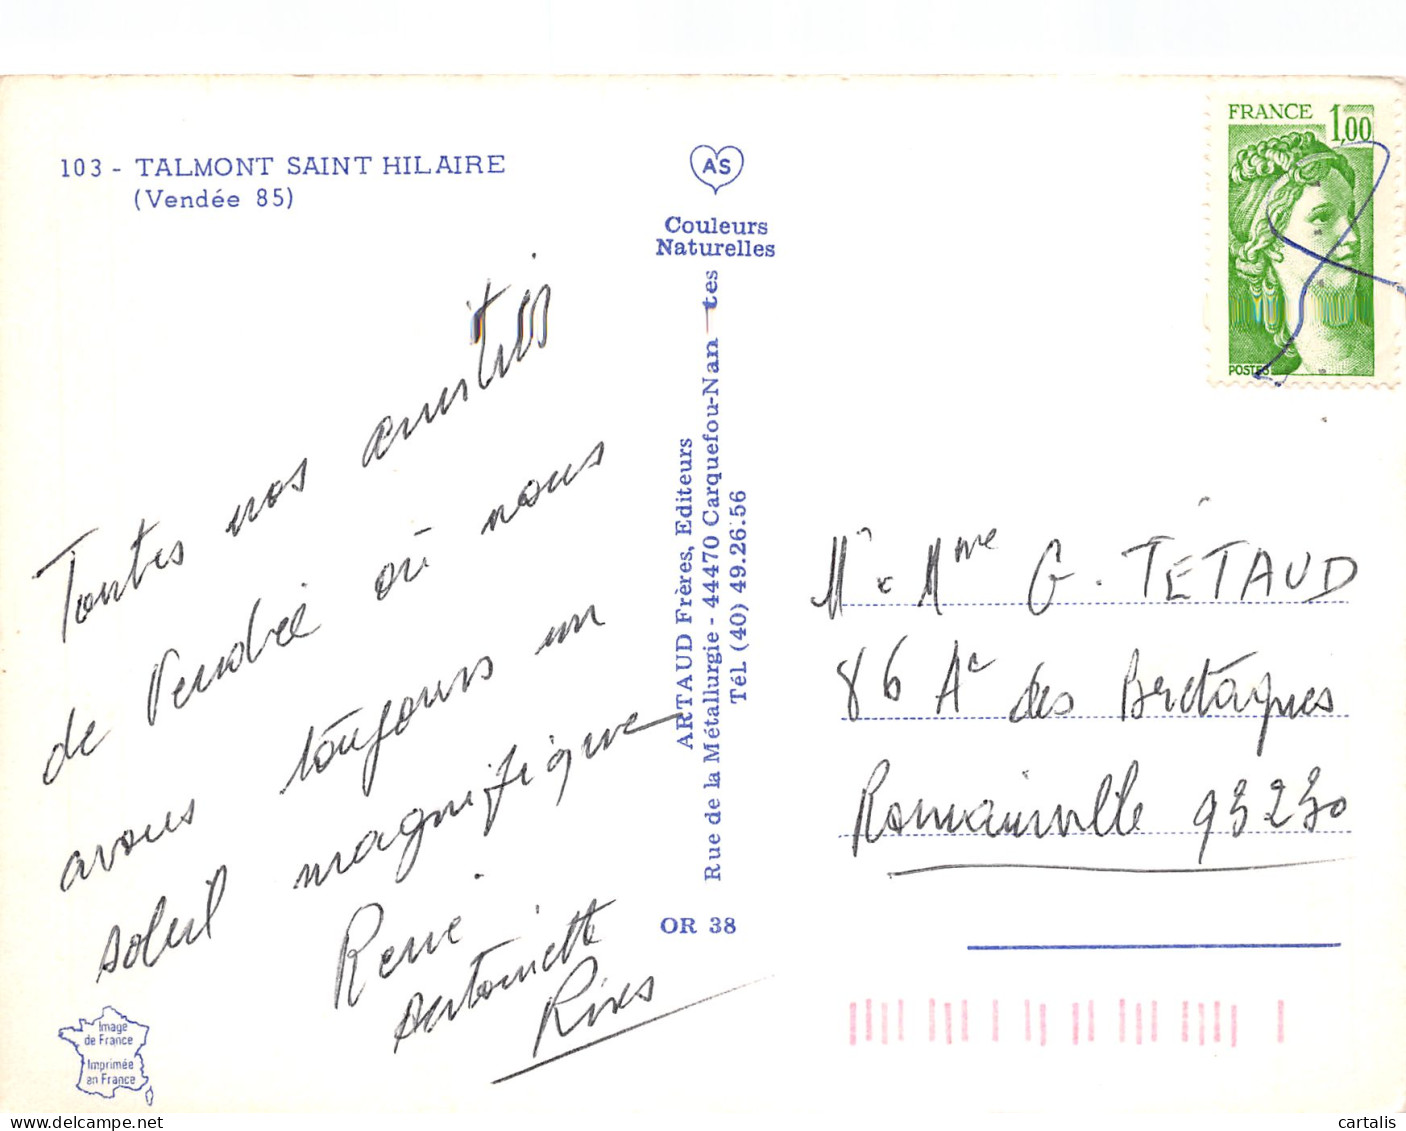 103 - TALMONT SAINT HILAIRE
(Vendée 85)
AS
Couleurs
Naturelles
FRANCE 1,00
POSTES
Toutes nos amitiés
de Vendée où nous
avons toujours un
soleil magnifique
René
Antoinette
Rives
ARTAUD Frères, Editeurs
Rue de la Métallurgie - 44470 Carquefou-Nantes
Tél. (40) 49.26.56
OR 38
Mr & Mme G. TÉTAUD
86 Ac des Bretagnes
Romainville 93230
Image
de France
Imprimée
en France
cartalis